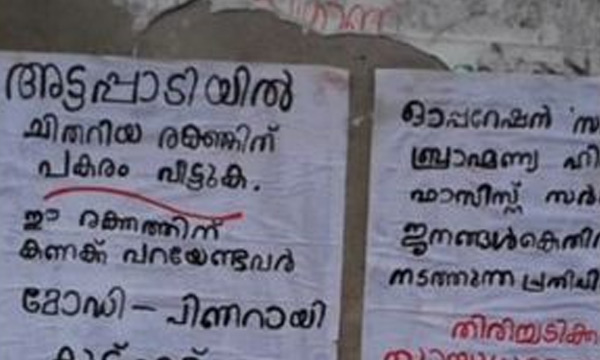 അട്ടപ്പാടിയിൽ
ചിതറിയ രക്തത്തിന്
പകരം വീട്ടുക.
ഈ രക്തത്തിന്
കണക്ക് പറയേണ്ടവർ
മോഡി – പിണറായി
ഓപ്പറേഷൻ 'സ
ബ്രാഹ്മണ്യ ഹി
ഫാസിസ്റ്റ് സർ
ജനങ്ങൾക്കെതി
നടത്തുന്ന പ്രതി
തിരിച്ചടിക്ക